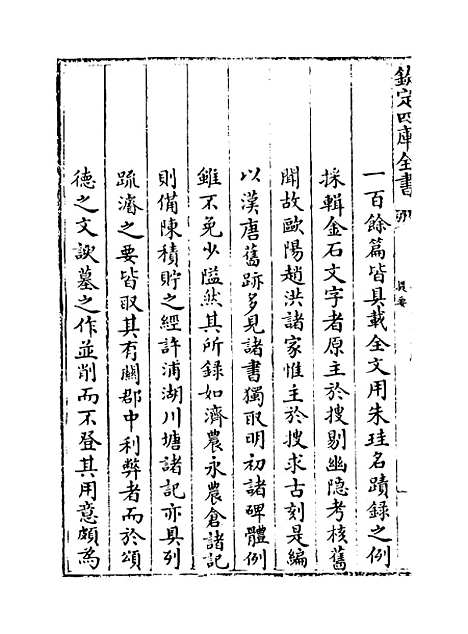 欽定四庫全書
提要
一百餘篇皆具載全文用朱珪名蹟録之例
採輯金石文字者原主於搜剔幽隱考核舊
聞故歐陽趙洪諸家惟主於搜求古刻是編
以漢唐舊跡多見諸書獨取明初諸碑體例
雖不免少隘然其所録如濟農永農倉諸記
則備陳積貯之經許浦湖川塘諸記亦具列
疏濬之要皆取其有闗郡中利弊者而於頌
德之文諛墓之作並削而不登其用意頗為